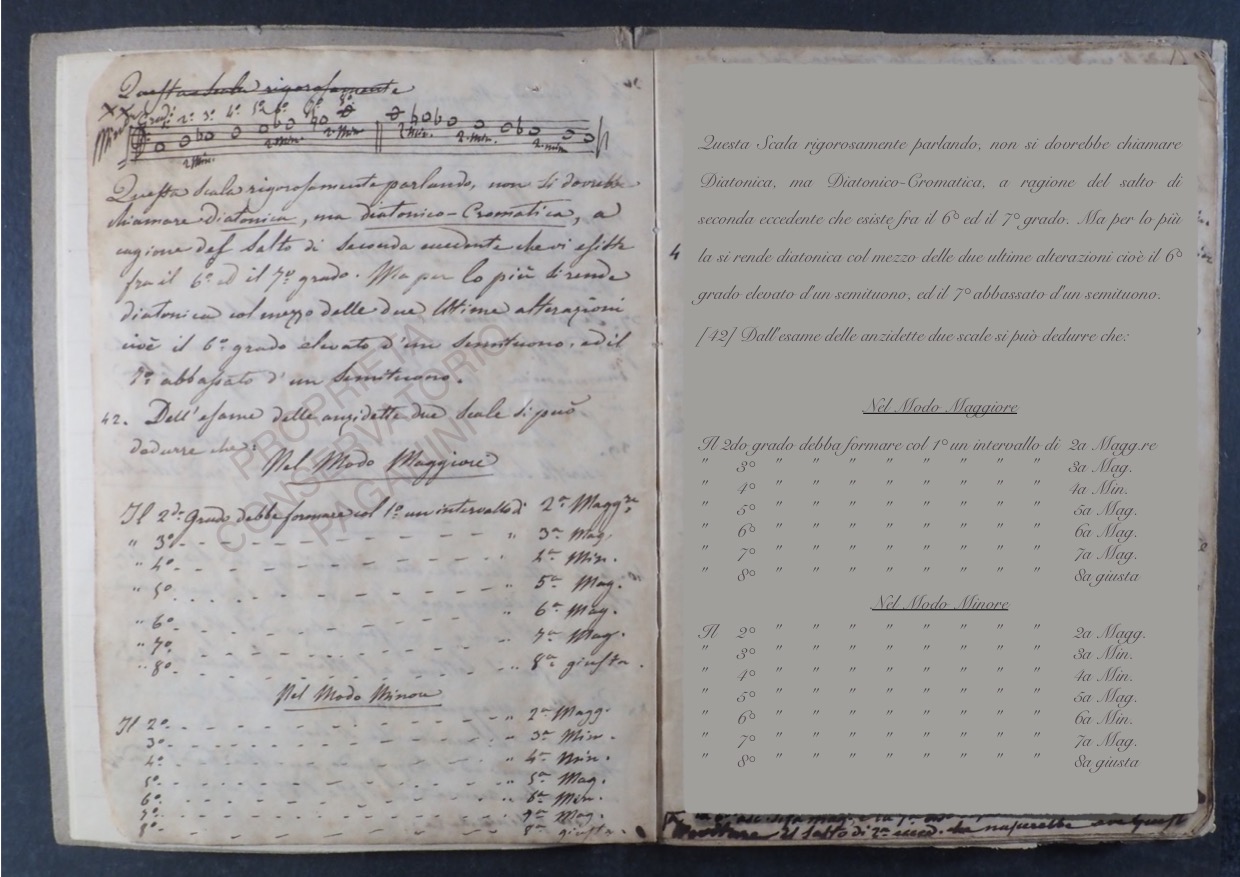 Questa scala rigorosamente
Gradi 2º 3º 4º 5º 6º 7º 8º
2 Min. 2 Min. 2 Min. 2 Min. 2. min. 2. min
Questa scala rigorosamente parlando, non si dovrebbe
chiamare diatonica, ma diatonico-Cromatica, a
cagione del salto di seconda eccedente che vi esiste
fra il 6º ed il 7º grado. Ma per lo più si rende
diatonica col mezzo delle due ultime alterazioni
cioè il 6º grado elevato d'un semituono, ed il
7º abbassato d'un semituono.
42. Dall'esame delle anzidette due scale si può
dedurre che:
Nel Modo Maggiore
Il 2do Grado debbe formare col 1º un intervallo di 2a Magg.re
" 3º - - - - - - - - - " 3a Mag.
" 4º - - - - - - - - - " 4a Min.
" 5º - - - - - - - - - " 5a Mag.
" 6º - - - - - - - - - " 6a Mag.
" 7º - - - - - - - - - " 7a Mag.
" 8º - - - - - - - - - " 8a giusta.
Nel Modo Minore
Il 2º - - - - - - - - - " 2a Magg.
3º - - - - - - - - - " 3a Min.
4º - - - - - - - - - " 4a Min.
5º - - - - - - - - - " 5a Mag.
6º - - - - - - - - - " 6a Min.
7º - - - - - - - - - " 7a Mag.
8º - - - - - - - - - " 8a giusta.
PROPRIETÀ
CONSERVATORIO
PAGANINI
Questa Scala rigorosamente parlando, non si dovrebbe chiamare
Diatonica, ma Diatonico-Cromatica, a ragione del salto di
seconda eccedente che esiste fra il 6º ed il 7º grado. Ma per lo più
la si rende diatonica col mezzo delle due ultime alterazioni cioè il 6º
grado elevato d'un semituono, ed il 7º abbassato d'un semituono.
[42] Dall'esame delle anzidette due scale si può dedurre che:
Nel Modo Maggiore
Il 2do grado debba formare col 1º un intervallo di 2a Magg.re
" 3º " " " " " " " " 3a Mag.
" 4º " " " " " " " " 4a Min.
" 5º " " " " " " " " 5a Mag.
" 6º " " " " " " " " 6a Mag.
" 7º " " " " " " " " 7a Mag.
" 8º " " " " " " " " 8a giusta
Nel Modo Minore
Il 2º " " " " " " " " 2a Magg.
" 3º " " " " " " " " 3a Min.
" 4º " " " " " " " " 4a Min.
" 5º " " " " " " " " 5a Mag.
" 6º " " " " " " " " 6a Min.
" 7º " " " " " " " " 7a Mag.
" 8º " " " " " " " " 8a giusta
4
il salto di 2a ecced. che nascerebbe